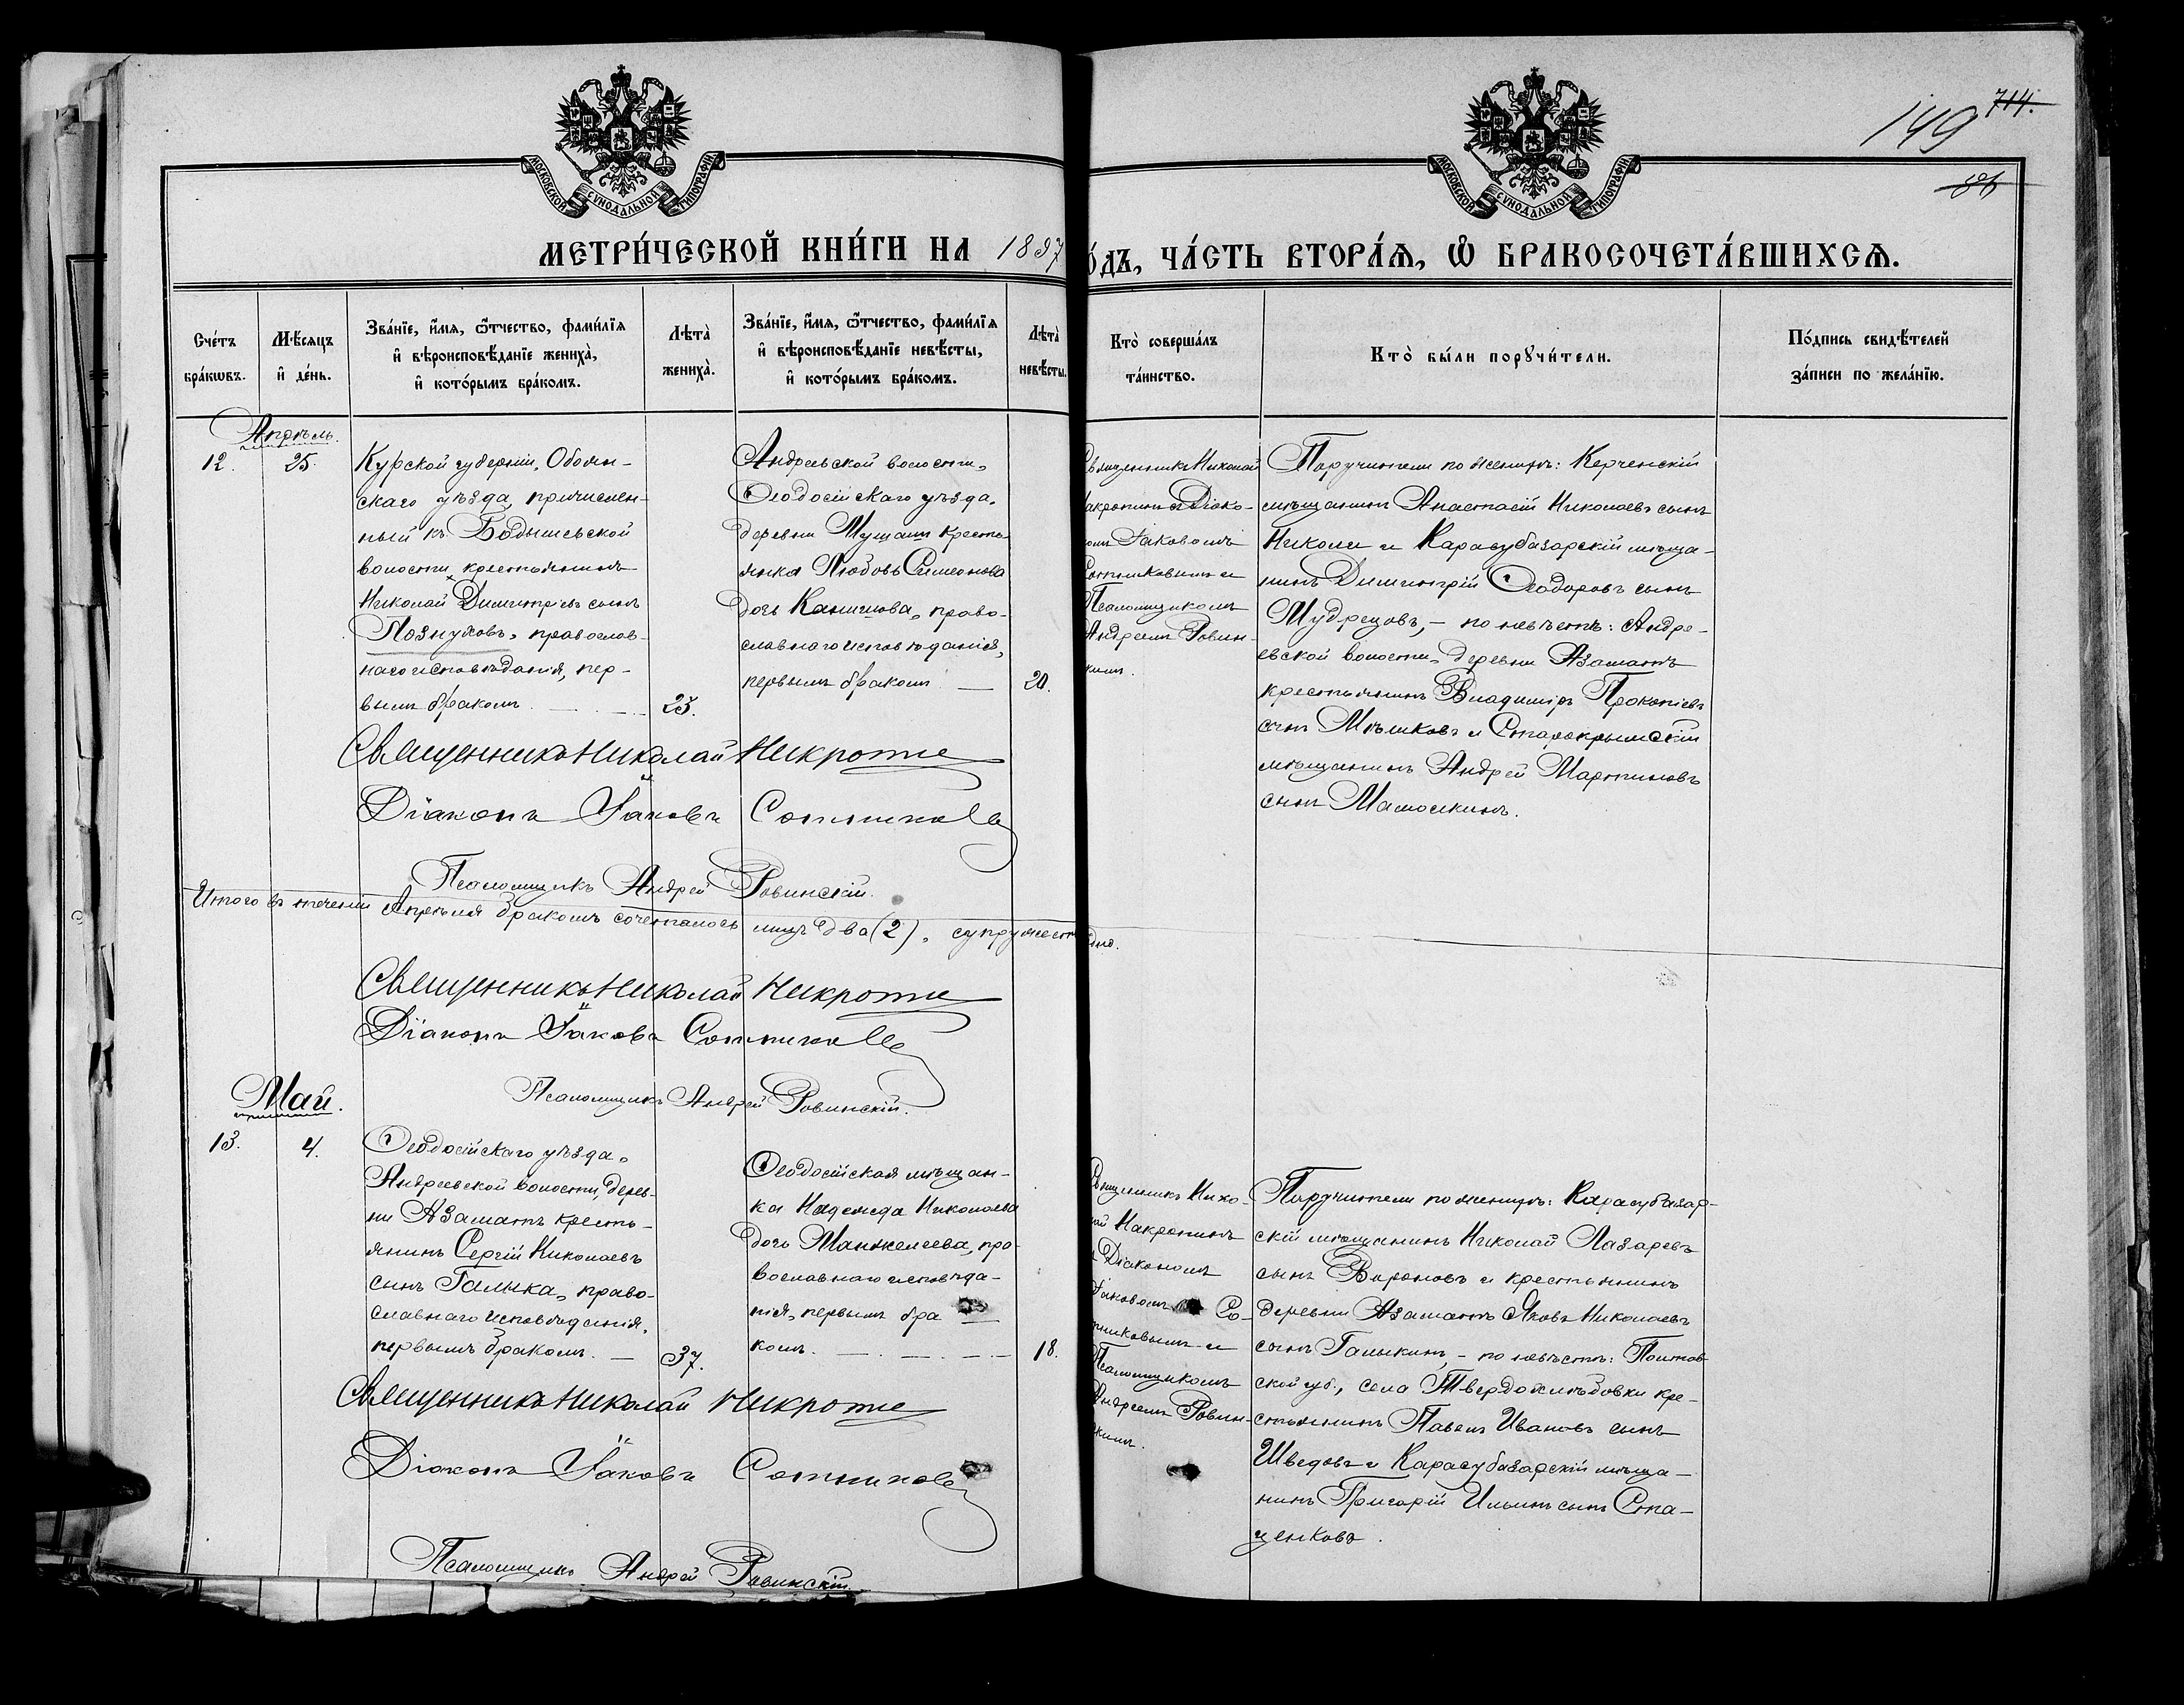 149 714.
86
МОСКОВСКОЙ СѴНОДАЛЬНОЙ ТИПОГРАФІИ
МОСКОВСКОЙ СѴНОДАЛЬНОЙ ТИПОГРАФІИ
МЕТРИ́ЧЕСКОЙ КНИ́ГИ НА 1897
О́ДЪ, ЧА́СТЬ ВТОРА́Ѧ, Ѿ БРАКОСОЧЕТА́ВШИХСѦ.
Сче́тъ
бра́кѡвъ.
Мѣ́сѧцъ
и҆ де́нь.
Зва́нїе, и҆́мѧ, ѻ҆́тчество, фами́лїѧ
и҆ вѣроисповѣ́данїе жениха̀,
и҆ кото́рымъ бра́комъ.
Лѣта̀
жениха̀.
Зва́нїе, и҆́мѧ, ѻ҆́тчество, фами́лїѧ
и҆ вѣроисповѣ́данїе невѣ́сты,
и҆ кото́рымъ бра́комъ.
Лѣта̀
невѣ́сты.
Кто̀ соверша́лъ
та́инство.
Кто̀ бы́ли порꙋчи́тели.
По́дпись свидѣ́телей
за́писи по жела́нїю.
Апрѣль.
12.
25.
Курской губерніи, Обоян-
скаго уѣзда, причислен-
ный къ
волости крестьянинъ
Николай Димитріевъ сынъ
Познуховъ, православ-
наго исповѣданія, пер-
вымъ бракомъ.
25.
Андреевской волости,
Ѳеодосійскаго уѣзда,
деревни крестья-
янка Любовь Симеонова
дочь право-
славнаго исповѣданія,
первымъ бракомъ
20.
Священникъ Николай
Діако-
номъ Іаковомъ
Сотниковымъ и
Псаломщикомъ
Андреемъ Ровин-
скимъ.
Поручители по женихѣ: Керченскій
мѣщанинъ Анастасій Николаевъ сынъ
Николи и Карасубазарскій мѣща-
нинъ Димитрій Ѳеодоровъ сынъ
Мудрецовъ, – по невѣстѣ: Андре-
евской волости, деревни Азаматъ
крестьянинъ Владиміръ Прокопіевъ
сынъ Мѣшковъ и Старокрымскій
мѣщанинъ Андрей Мартиновъ
сынъ Мамошкинъ.
Священникъ Николай
Діаконъ Іаковъ Сотниковъ
Псаломщикъ Андрей Ровинскій.
Итого въ теченіи Апрѣля бракомъ сочеталось лицъ два (2), супружество одно.
Священникъ Николай
Діаконъ Іаковъ Сотниковъ
Псаломщикъ Андрей Ровинскій.
Май.
13.
4.
Ѳеодосійскаго уѣзда,
Андреевской волости, дерев-
ни Азаматъ кресть-
янинъ Сергій Николаевъ
сынъ Галыка, право-
славнаго исповѣданія,
первымъ бракомъ. –
37.
Ѳеодосійская мѣщан-
ка Надежда Николаева
дочь Манжелеева, пра-
вославнаго исповѣда-
нія, первымъ бра
комъ.
18.
Священникъ Нико-
лай Макротинъ
и Діакономъ
Іаковомъ Со-
тниковымъ и
Псаломщикомъ
Андреемъ Ровин-
скимъ.
Поручители по женихѣ: Карасубазар-
скій мѣщанинъ Николай Лазаревъ
сынъ Вороновъ и крестьянинъ
деревни Азаматъ Яковъ Николаевъ
сынъ Галыкинъ, – по невѣстѣ: Полтав-
ской губ., села крe-
стьянинъ Павелъ Ивановъ сынъ
Шведовъ и Карасубазарскій мѣща-
нинъ Григорій Ильинъ сынъ Ста-
ценковъ.
Священникъ Николай
Діаконъ Іаковъ Сотниковъ
Псаломщикъ Андрей Ровинскій.